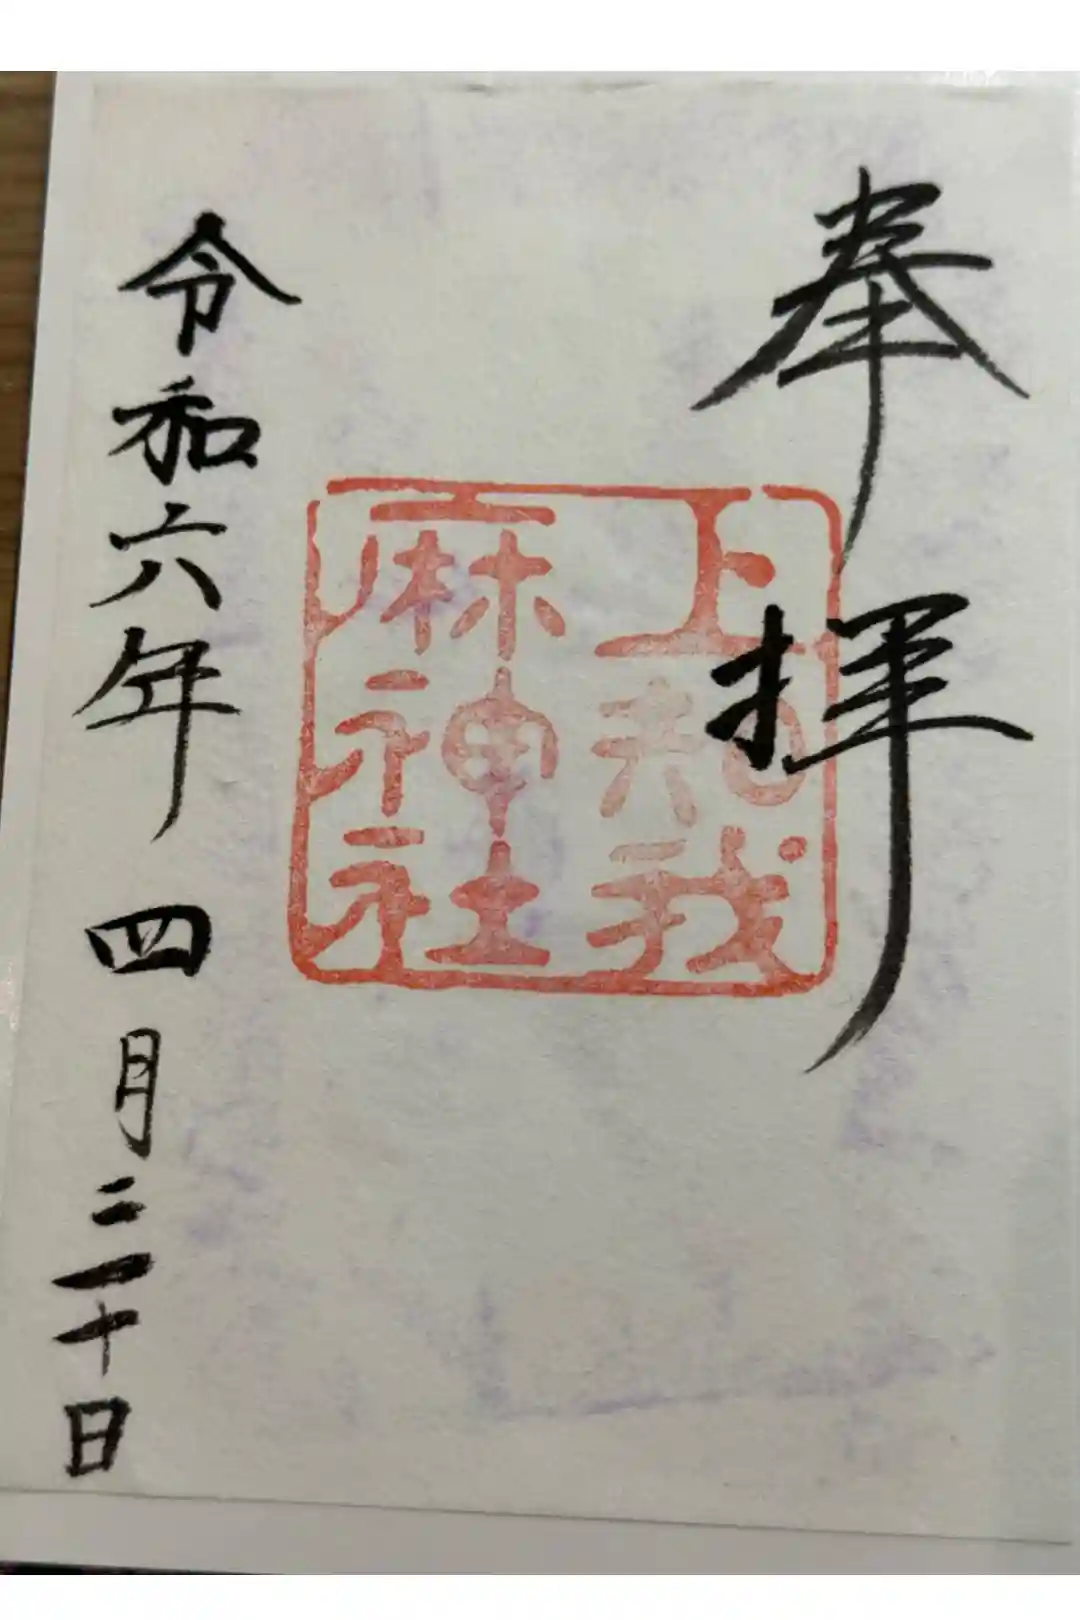 奉拝
上知我
麻神社
令和六年四月三十日